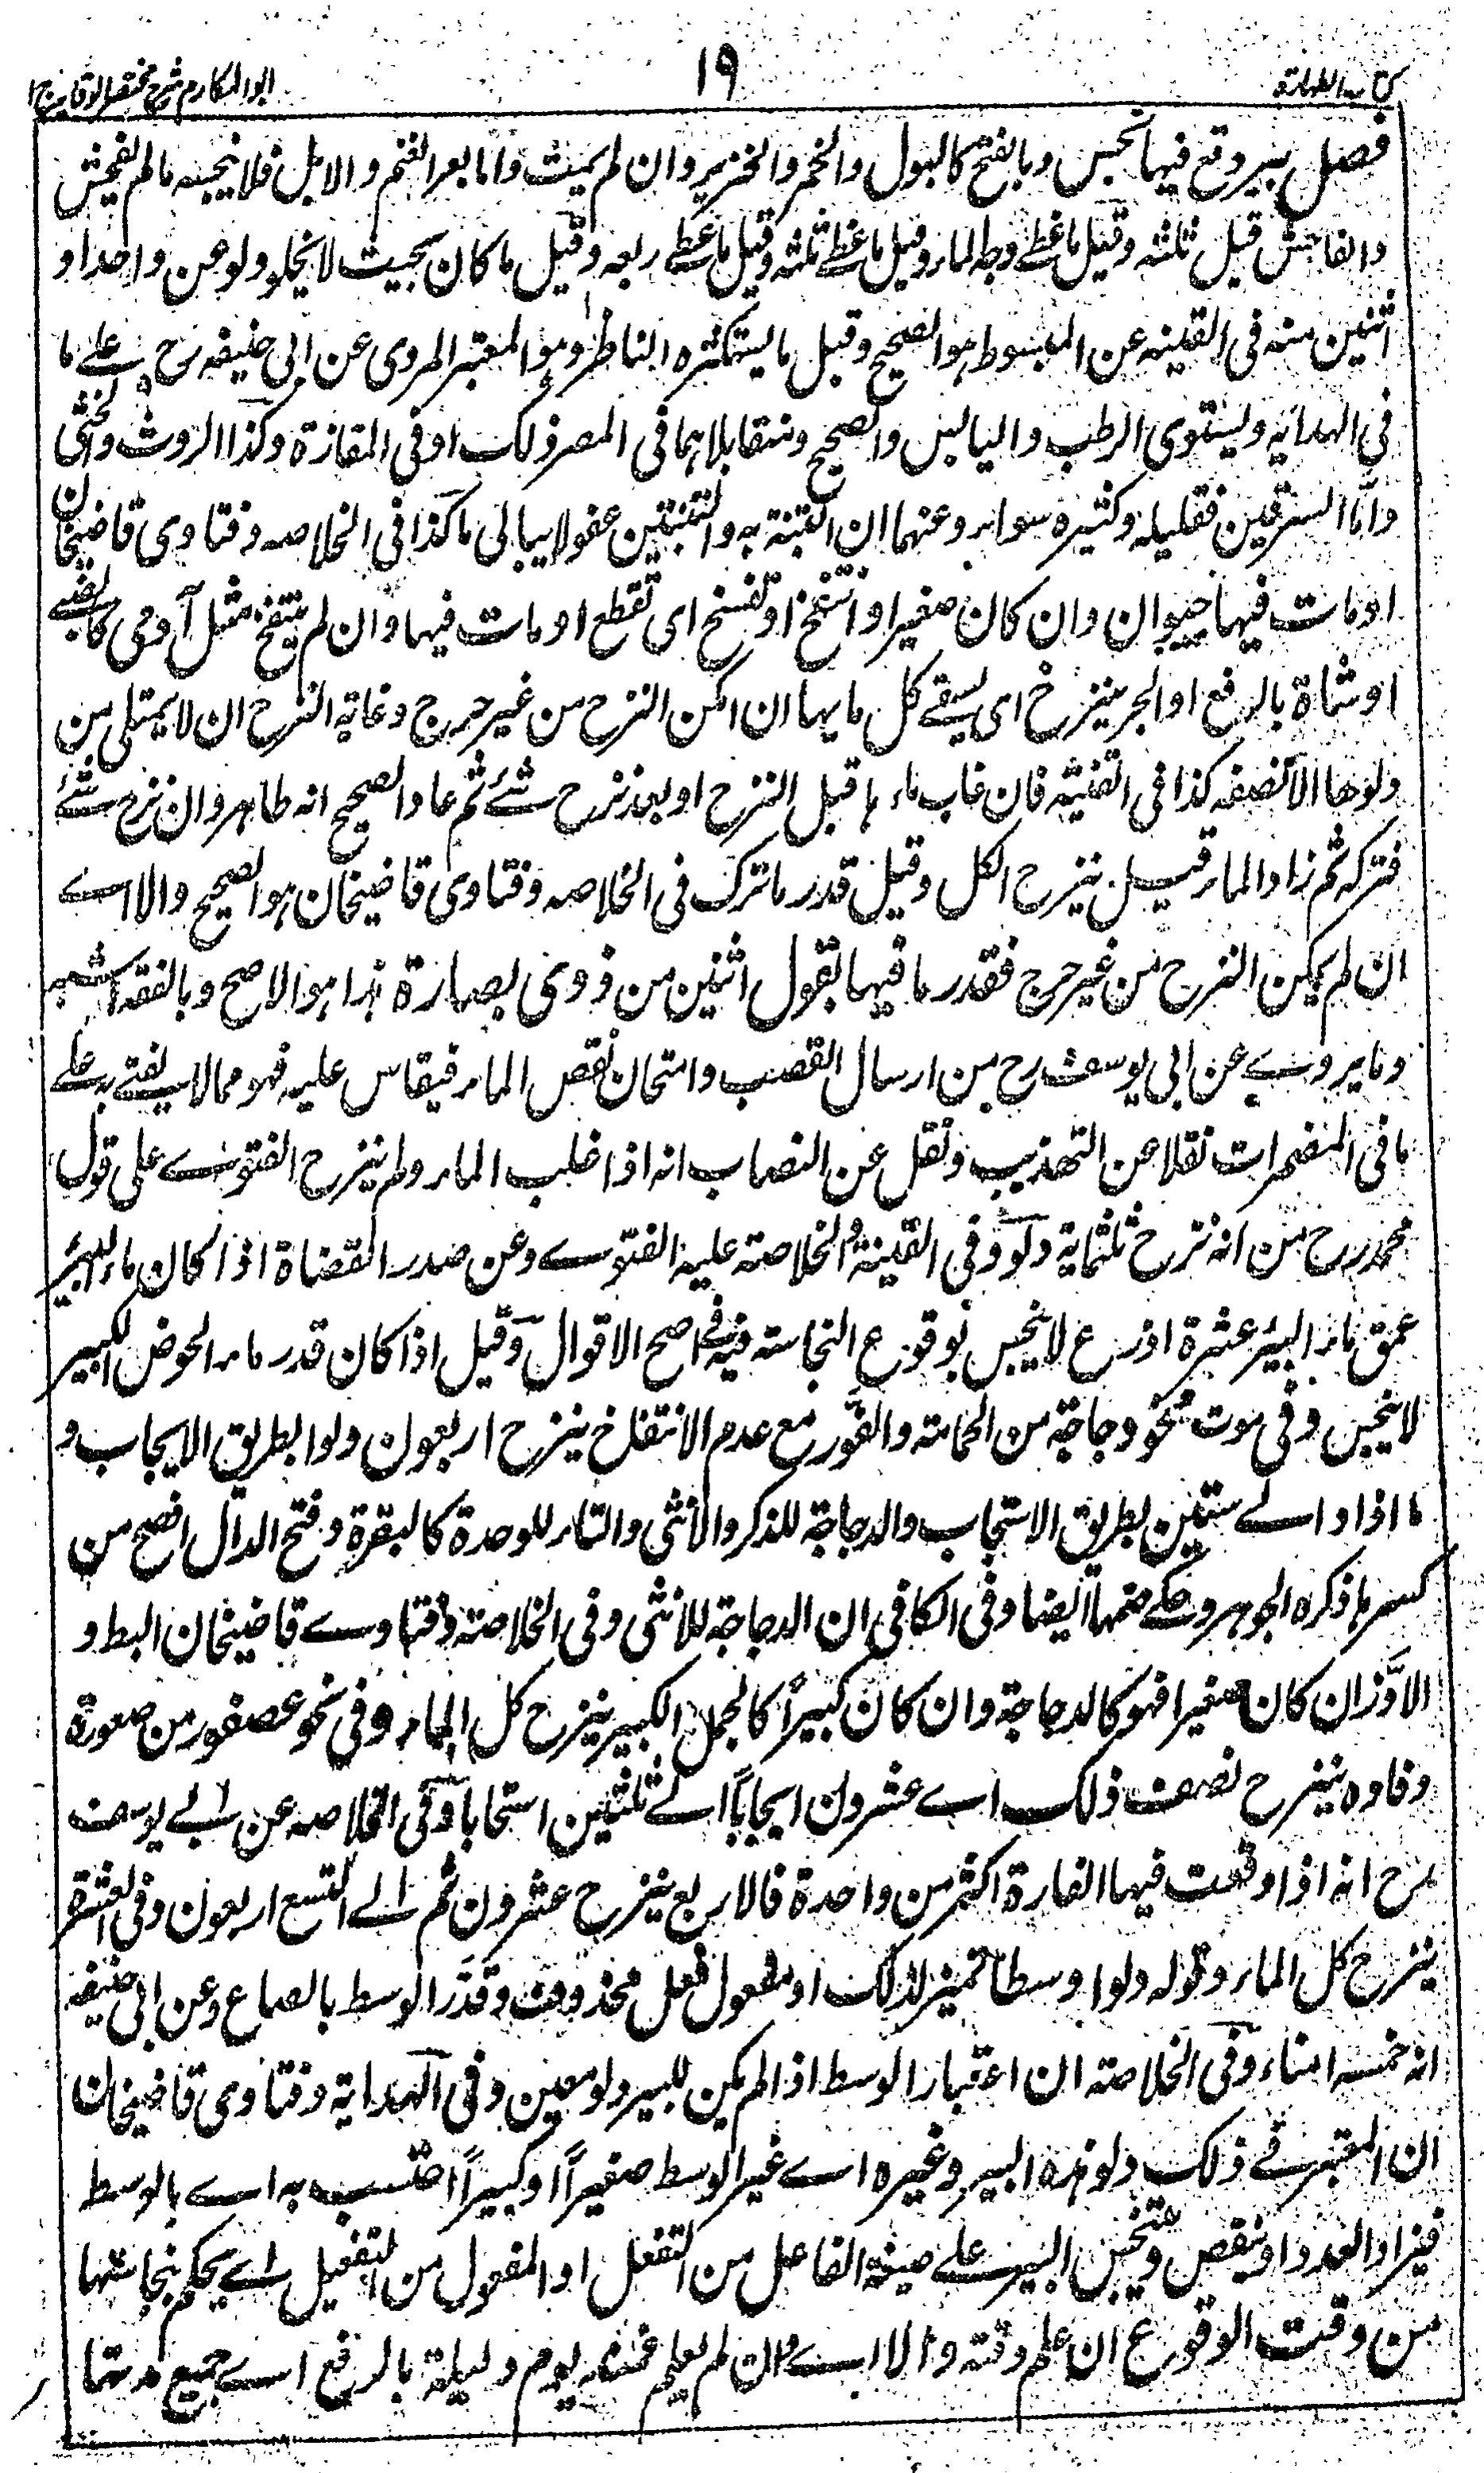 كتاب الطهارة
١٩
ابو المكارم شرح مختصر الوقاية ج ١
فصل بير وقع فيها نجس وبالفتح كالبول والخمر والخنزير وان لم يمت واما بعر الغنم والابل فلا ينجسه مالم يفحش
والفاحش قيل ثلثه وقيل ما غطے وجه الماء وقيل ما غطے ثلثه وقيل ما غطے ربعه وقيل ما كان بحيث لا يخلو دلو عن واحد او
اثنين منه فى القنيه عن المبسوط هو الصحيح وقيل ما يستكثره الناظر وهو المعتبر المروى عن ابى حنيفه رح علے ما
فى الهدايه ويستوى الرطب واليابس والصحيح ومتقابلاهما فى المصر وكذلك او فى المفازة وكذا الروث والخثى
واما السرقين فقليله وكثيره سواء وعنهما ان التبنة به والتبنتين عفو لا يبالى ما كذا فى الخلاصه وفتاوى قاضيخان
او مات فيها حيوان وان كان صغيرا و انتفخ او تفسخ اى تقطع او مات فيها وان لم ينتفخ مثل آدمى
او شاة بالرفع او الجر ينزح اى يسقے كل مايها ان امكن النزح من غير حرج وغاية النزح ان لا يمتلى من
دلوها الا نصفه كذا فى القنية فان غاب ماء ها قبل النزح او بعد نزح شئے ثم عاد الصحيح انه طاهر وان نزح شئے
فتركه ثم زاد الماء قيل ينزح الكل وقيل قدر ما ترك فى الخلاصه وفتاوى قاضيخان هو الصحيح والا اے
ان لم يمكن النزح من غير حرج فقدر ما فيها بقول اثنين من ذوى بصارة هذا هو الاصح وبالفقه اشبه
وما يروے عن ابى يوسف رح من ارسال القصب وامتحان نقص الماء فيقاس عليه فهو مما لا يفتے به علے
ما فى المضمرات نقلا عن التهذيب ونقل عن النصاب انه اذا غلب الماء ولم ينزح الفتوے على قول
محمد رح من انه نزح ثلثماية دلو وفى القنية والخلاصة عليه الفتوے وعن صدر القضاة اذا كان ماء البير
عمق ماء البير عشرة اذرع لا ينجس بوقوع النجاسته فيه فے اصح الاقوال وقيل اذا كان قدر ماء الحوض الكبير
لا ينجس وفى موت نحو دجاجة من الحمامة والسنور مع عدم الانتفاخ ينزح اربعون دلوا بطريق الايجاب و
ما اذا و الے ستين بطريق الاستحباب والدجاجة للذكر والانثى والتاء للوحدة كالبقرة وفتح الدال افصح من
كسرها ذكره الجوهر وحكے ضمها ايضا وفى الكافى ان الدجاجة للانثى وفى الخلاصة وفتاوے قاضيخان البط و
الاوز ان كان صغيرا فهو كالدجاجة وان كان كبيراً كالجمل الكبير ينزح كل الماء وفى نحو عصفور من صعوة
وفاره ينزح نصف ذلك اے عشرون ايجاباً الے ثلثين استحبابا وفى الخلاصه عن ابے يوسف
رح انه اذا وقعت فيها الفارة اكثر من واحدة فالاربع ينزح عشرون ثم الے التسع اربعون وفى العشرة
ينزح كل الماء وقوله دلوا وسطا تميز لذلك او مفعول فعل محذوف وقدر الوسط بالصاع وعن ابى حنيفه
انه خمسه امناء وفى الخلاصة ان اعتبار الوسط اذا لم يكن للبير دلو معين وفى الهداية وفتاوى قاضيخان
ان المعتبر فے ذلك دلو هذه البير وغيره اے غير الوسط صغيراً او كبيراً احتسب به اے بالوسط
فيزاد العدد او ينقص وتنجس البير علے صيغة الفاعل من التفعل او المفعول من التفعيل اے يحكم بنجاستها
من وقت الوقوع ان علم وقته والا اے وان لم يعلم فمنذ يوم وليلة بالرفع اے جميع مدتها